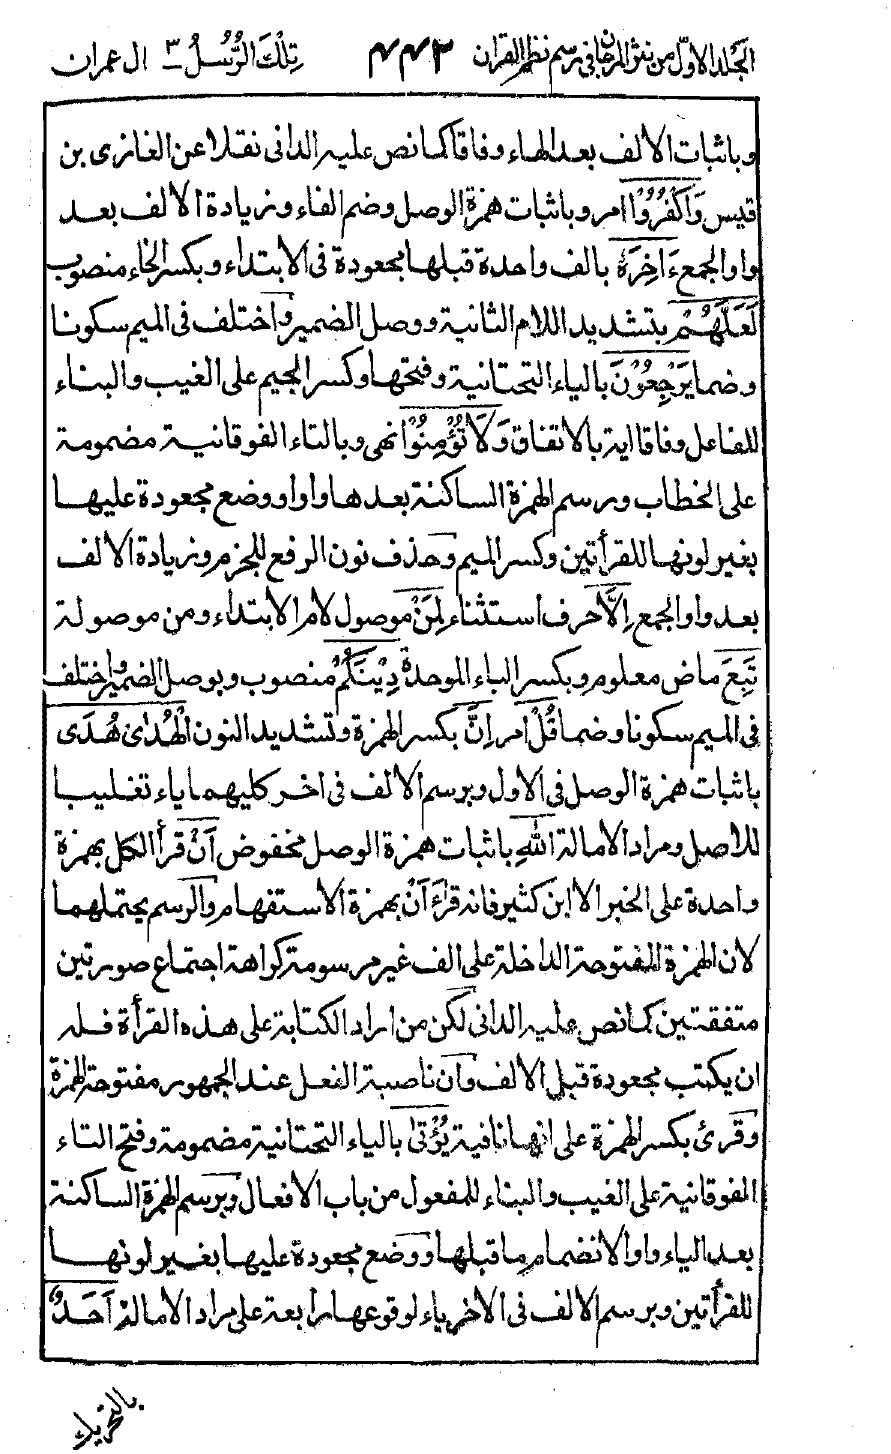 الجلد الاول من نثر المرجان في رسم نظم القران ٤٤٣ تِلْكَ الرُّسُلُ ٣ ال عمران
وباثبات الالف بعد الهاء وفاقا كما نص عليه الدانى نقلا عن الغازى بن
قيس وَاكْفُرُوْا امر وباثبات همزة الوصل وضم الفاء وزيادة الالف بعد
واو الجمع ءَاخِرَهٗ بالف واحدة قبلها مجعودة فى الابتداء وبكسر الخاء منصوب
لَعَلَّهُمْ بتشديد اللام الثانية ووصل الضمير واختلف فى الميم سكونا
وضما يَرْجِعُوْنَ بالياء التحتانية وفتحها وكسر الجيم على الغيب والبناء
للفاعل وفاقا اية بالاتفاق وَلَا تُؤْمِنُوْا نهى وبالتاء الفوقانية مضمومة
على الخطاب وبرسم الهمزة الساكنة بعدها واوا ووضع مجعودة عليها
بغير لونها للقرأتين وكسر الميم وحذف نون الرفع للجزم وزيادة الالف
بعد واو الجمع اِلَّا حرف استثناء لِمَنْ موصول لام الابتداء ومن موصولة
تَبِعَ ماض معلوم وبكسر الباء الموحدة دِيْنَكُمْ منصوب وبوصل الضمير واختلف
فى الميم سكونا وضما قُلْ امر اِنَّ بكسر الهمزة وتشديد النون الْهُدٰى هُدَى
باثبات همزة الوصل فى الاول وبرسم الالف فى اخر كليهما ياء تغليبا
للاصل ومراد الامالة اللّٰهِ باثبات همزة الوصل مخفوض اَنْ قرأ الكل بهمزة
واحدة على الخبر الا ابن كثير فانه قرأ ءَاَنْ بهمزة الاستفهام والرسم يحتملهما
لان الهمزة المفتوحة الداخلة على الف غير مرسومة كراهة اجتماع صورتين
متفقتين كما نص عليه الدانى لكن من اراد الكتابة على هذه القرأة فله
ان يكتب مجعودة قبل الالف وان ناصبة الفعل عند الجمهور مفتوحة الهمزة
وقرئ بكسر الهمزة على انها نافية يُؤْتٰى بالياء التحتانية مضمومة وفتح التاء
الفوقانية على الغيب والبناء للمفعول من باب الافعال وبرسم الهمزة الساكنة
بعد الياء واوا لانضمام ما قبلها ووضع مجعودة عليها بغير لونها
للقرأتين وبرسم الالف فى الاخر ياء لوقوعها رابعة على مراد الامالة اَحَدٌ
بالتحريك